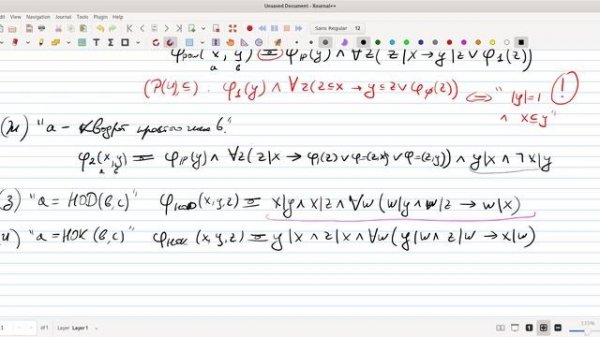 Unsaved Document - Xournal++
File Edit View Navigation Journal Tools Plugin Help
Sans Regular 12
(x, y) = φ_IP(y) ∧ ∀z( z|x → y|z ∨ φ_1(z))
a b
(P(U), ⊆) . φ_1(y) ∧ ∀z(z⊆x → y⊆z ∨ φ_φ(z)) ⇔ " |y|=1 !
∧ x⊆y"
"a - квадрат простого числа b."
φ_2(x,y) = φ_IP(y) ∧ ∀z(z|x → φ_1(z) ∨ φ_=(z,x) ∨ φ_=(z,y)) ∧ y|x ∧ ¬x|y
a b
(з) "a = НОД(b,c)" φ_НОД(x,y,z) = x|y ∧ x|z ∧ ∀w (w|y ∧ w|z → w|x)
(и) "a = НОК (b,c)" φ_НОК (x,y,z) = y|x ∧ z|x ∧ ∀w(y|w ∧ z|w → x|w)
of 1 Layer Layer 1 133%